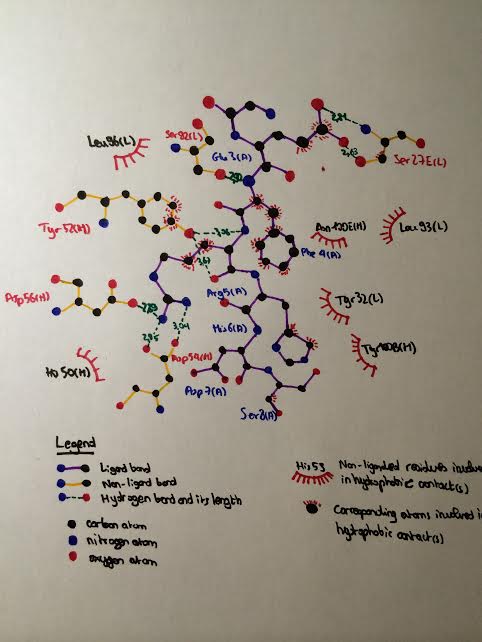 Leu96(L)
Ser92(L)
Glu3(A)
2,81
2,63
Ser27E(L)
Tyr52(H)
Leu93(L)
Phe4(A)
Asp56(H)
Arg5(A)
Tyr32(L)
3,04
His6(A)
Asp54(H)
Asp7(A)
Ser8(A)
Legend
Ligand bond
Non-ligand bond
Hydrogen bond and its length
carbon atom
nitrogen atom
oxygen atom
His53
Non-liganded residues involve
in hydrophobic contact(s)
Corresponding atoms involved i
hydrophobic contact(s)